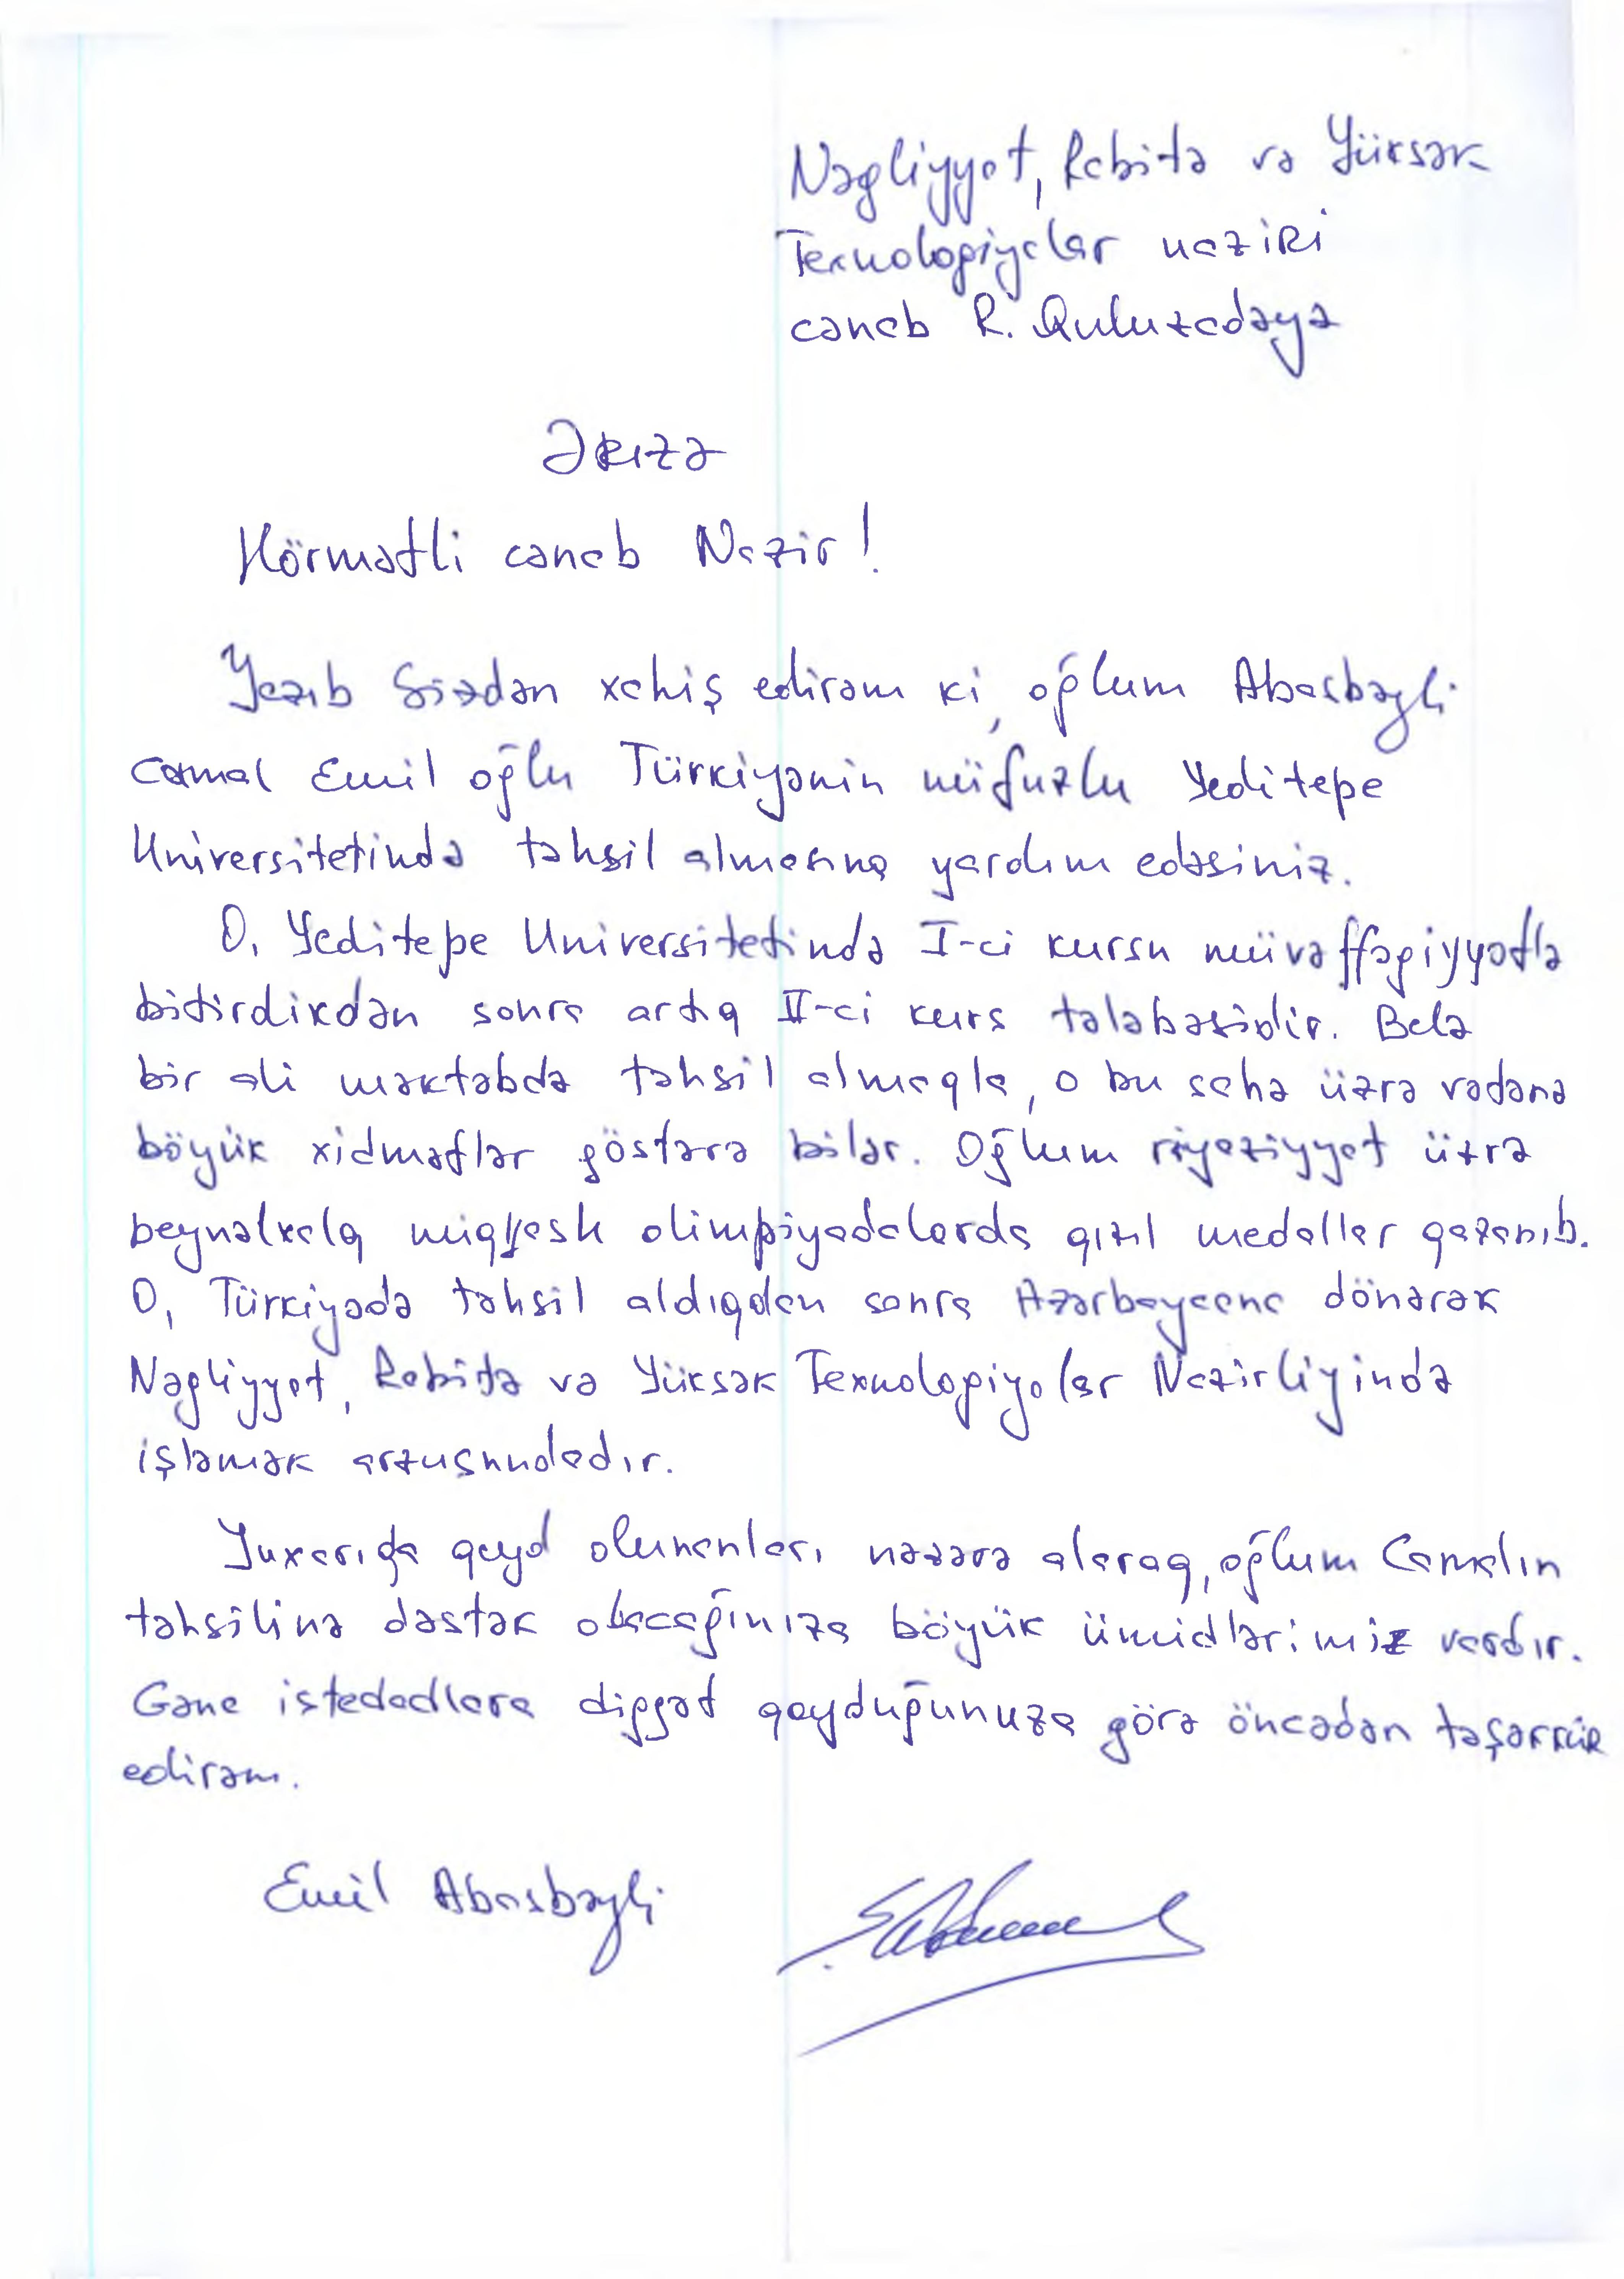 Nəqliyyat, Rabitə və Yüksək
Texnologiyalar naziri
cənab R. Quluzadəyə
Ərizə
Hörmətli cənab Nazir!
Yazıb Sizdən xahiş edirəm ki, oğlum Abasbəyli
Camal Emil oğlu Türkiyənin nüfuzlu Yeditepe
Universitetində təhsil almasına yardım edəsiniz.
O, Yeditepe Universitetində I-ci kursu müvəffəqiyyətlə
bitirdikdən sonra artıq II-ci kurs tələbəsidir. Belə
bir ali məktəbdə təhsil almaqla, o bu sahə üzrə vətənə
böyük xidmətlər göstərə bilər. Oğlum riyaziyyat üzrə
beynəlxalq miqyaslı olimpiyadalarda qızıl medallar qazanıb.
O, Türkiyədə təhsil aldıqdan sonra Azərbaycana dönərək
Nəqliyyat, Rabitə və Yüksək Texnologiyalar Nazirliyində
işləmək arzusundadır.
Yuxarıda qeyd olunanları nəzərə alaraq, oğlum Camalın
təhsilinə dəstək olacağınıza böyük ümidlərimiz vardır.
Gənc istedadlara diqqət qayduğunuza görə öncədən təşəkkür
edirəm.
Emil Abasbəyli